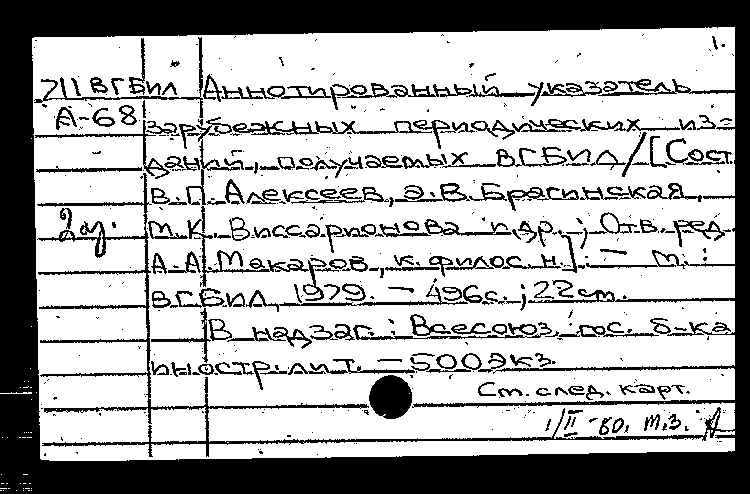 1.
711 ВГБИЛ Аннотированный указатель
А-68 зарубежных периодических из-
даний, получаемых ВГБИЛ/[Сост
В.П. Алексеев, Э.В. Брагинская,
2 М.К. Виссарионова и др.; Отв. ред.
А.А. Макаров, к. филос. н.]. — М.:
ВГБИЛ, 1979. — 496с.; 22см.
В надзаг.: Всесоюз. гос. б-ка
иностр. лит. — 500экз.
См. след. карт.
1/II -80. М.З.